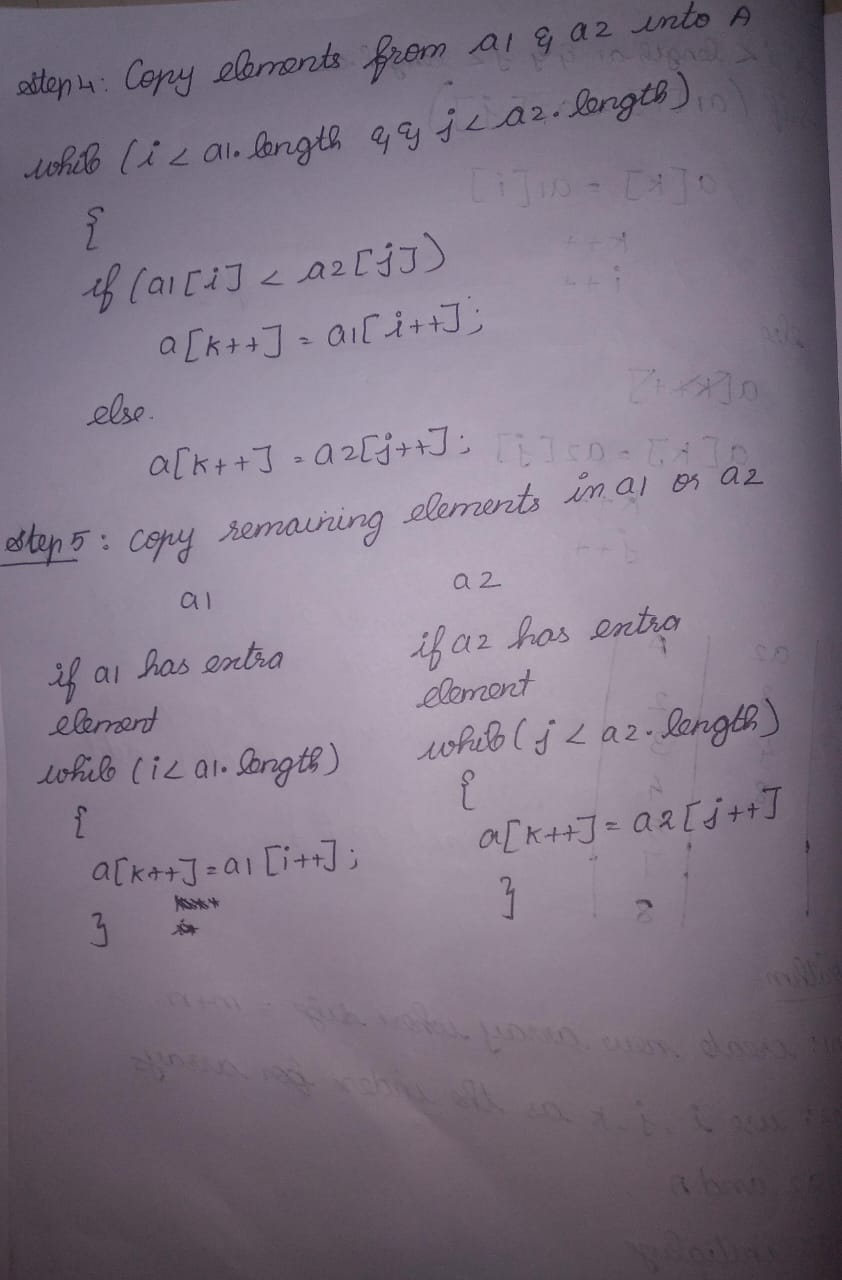 Step 4: Copy elements from a1 & a2 into A
while (i < a1.length && j < a2.length)
{
if (a1[i] < a2[j])
a[k++] = a1[i++];
else.
a[k++] = a2[j++];
Step 5: copy remaining elements in a1 or a2
a1
if a1 has extra
element
while (i < a1.length)
{
a[k++] = a1[i++];
}
a2
if a2 has extra
element
while (j < a2.length)
{
a[k++] = a2[j++]
}